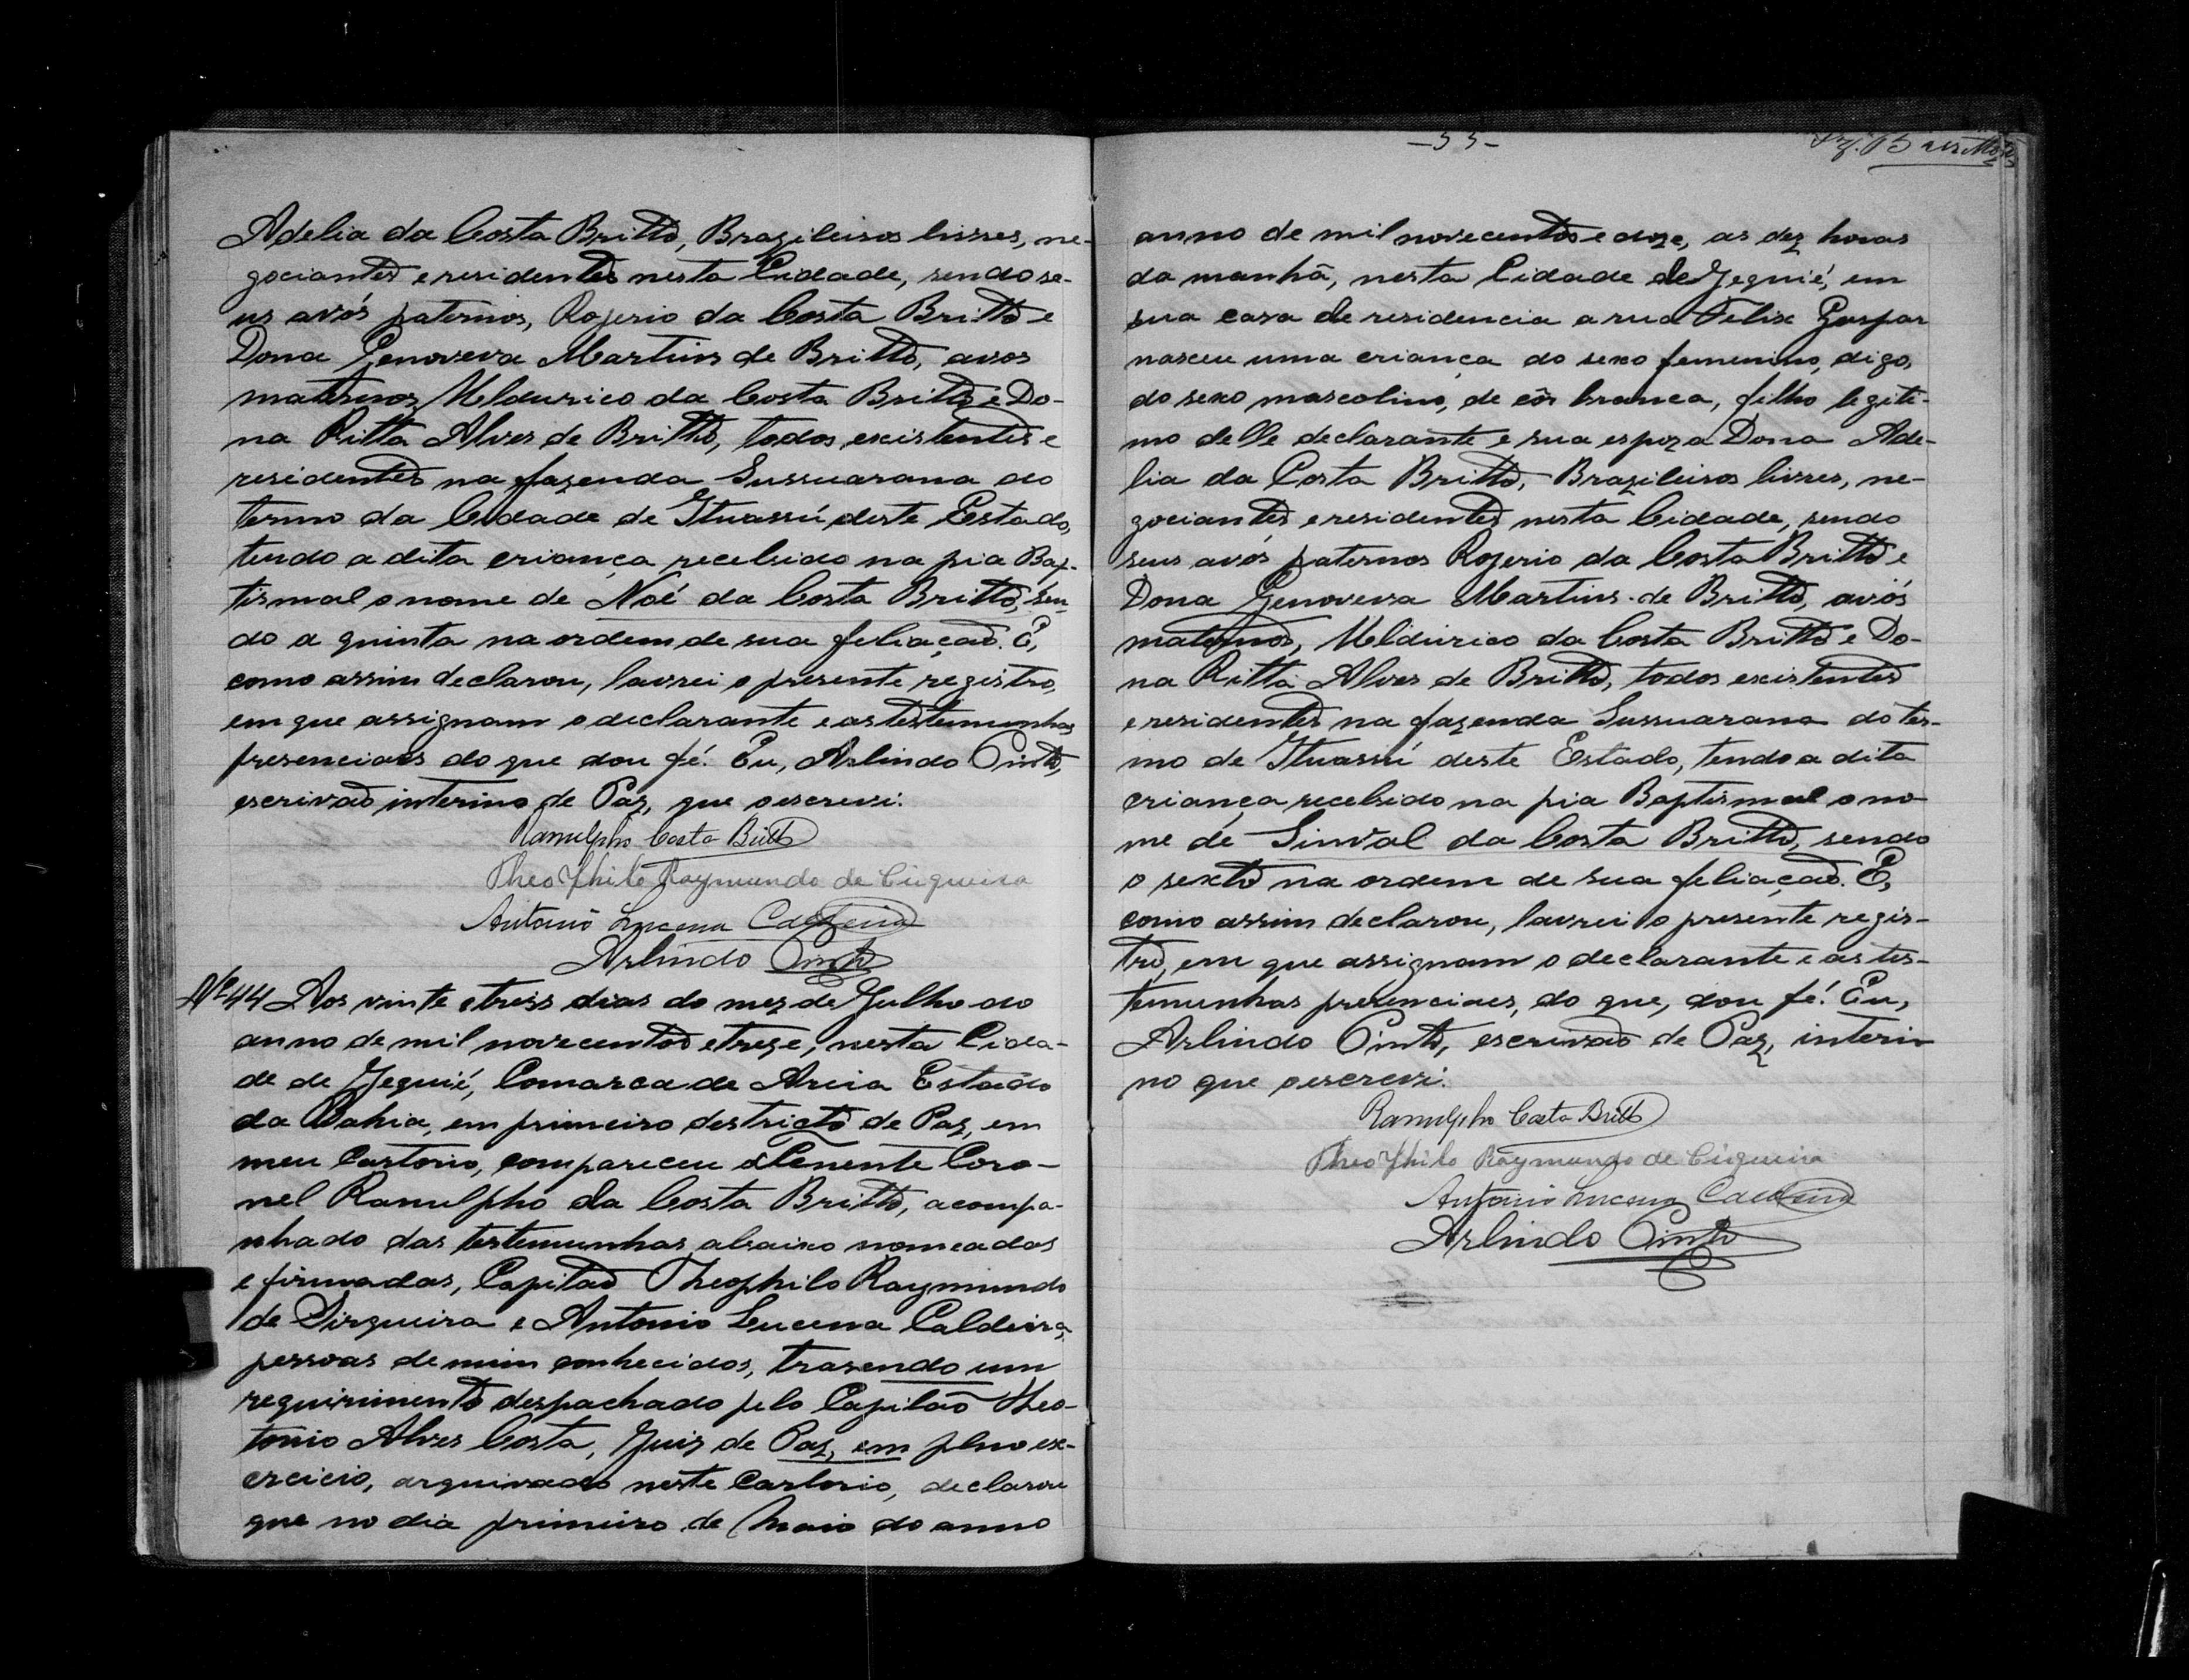 Adelia da Costa Britto, Brazileiros livres, ne-
gociantes e residentes nesta Cidade, sendo se-
us avós paternos, Rogerio da Costa Britto e
Dona Genoveva Martins de Britto, avos
maternos Meldurico da Costa Britto e Do-
na Ritta Alves de Britto, todos existentes e
residentes na fazenda Sussuarana do
termo da Cidade de Ituassú, deste Estado,
tendo a dita criança recebido na pia Bap-
tismal o nome de Noé da Costa Britto, sen-
do a quinta na ordem de sua feliação. E,
como assim declarou, lavrei o presente registro,
em que assignam o declarante e as testemunhas
presenciaes do que dou fé. Eu, Arlindo Pinto,
escrivão interino de Paz, que o escrevi.
Ranulpho Costa Britto
Theophilo Raymundo de Cirqueira
Antonio Lucena Caldeira
Arlindo Pinto
Nº 44 Aos vinte e tress dias do mez de Julho do
anno de mil novecentos e treze, nesta Cida-
de de Jequié, Comarca de Areia Estado
da Bahia, em primeiro destricto de Paz, em
meu Cartorio, compareceu o Tenente Coro-
nel Ranulpho da Costa Britto, acompa-
nhado das testemunhas abaixo nomeadas
e firmadas, Capitão Theophilo Raymundo
de Sirqueira e Antonio Lucena Caldeira,
pessoas de mim conhecidos, trasendo um
requirimento despachado pelo Capitão Theo-
tonio Alves Costa, Juiz de Paz, em pleno ex-
ercicio, arquivado neste Cartorio, declarou
que no dia primeiro de Maio do anno
-33-
anno de mil novecentos e doze, as dez horas
da manhã, nesta Cidade de Jequié, em
sua casa de residencia a rua Felix Gaspar
nasceu uma criança do sexo femenino, digo,
do sexo mascolino, de côr branca, filho legiti-
mo delle declarante e sua espoza Dona Ade-
lia da Costa Britto, Brazileiros livres, ne-
gociantes e residentes nesta Cidade, sendo
seus avós paternos Rogerio da Costa Britto e
Dona Genoveva Martins de Britto, avós
maternos, Meldurico da Costa Britto e Do-
na Ritta Alves de Britto, todos existentes
e residentes na fazenda Sussuarana do ter-
mo de Ituassú deste Estado, tendo a dita
criança recebido na pia Baptismal o no-
me de Sinval da Costa Britto, sendo
o sexto na ordem de sua feliação. E,
como assim declarou, lavrei o presente regis-
tro, em que assignam o declarante e as tes-
temunhas presenciaes, do que, dou fé. Eu,
Arlindo Pinto, escrivão de Paz, interi-
no que o escrevi.
Ranulpho Costa Britto
Theophilo Raymundo de Cirqueira
Antonio Lucena Caldeira
Arlindo Pinto